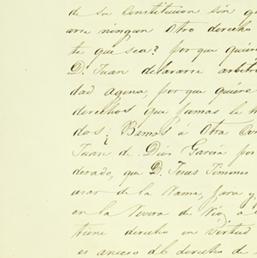 de su Constitucion sin q
arre ningun otro derecho
te que sea? porque quier
D. Juan declararse arbitr
dad agena, porque quiere
derechos que jamas le h
dos? Bamos a otra
Juan de Dios Garcia por
derado, que D. Jesus Jimenes
de la Nama, Jara y
en la Rivera de Rio, a
tiene derecho en virtud
es anecso al derecho de